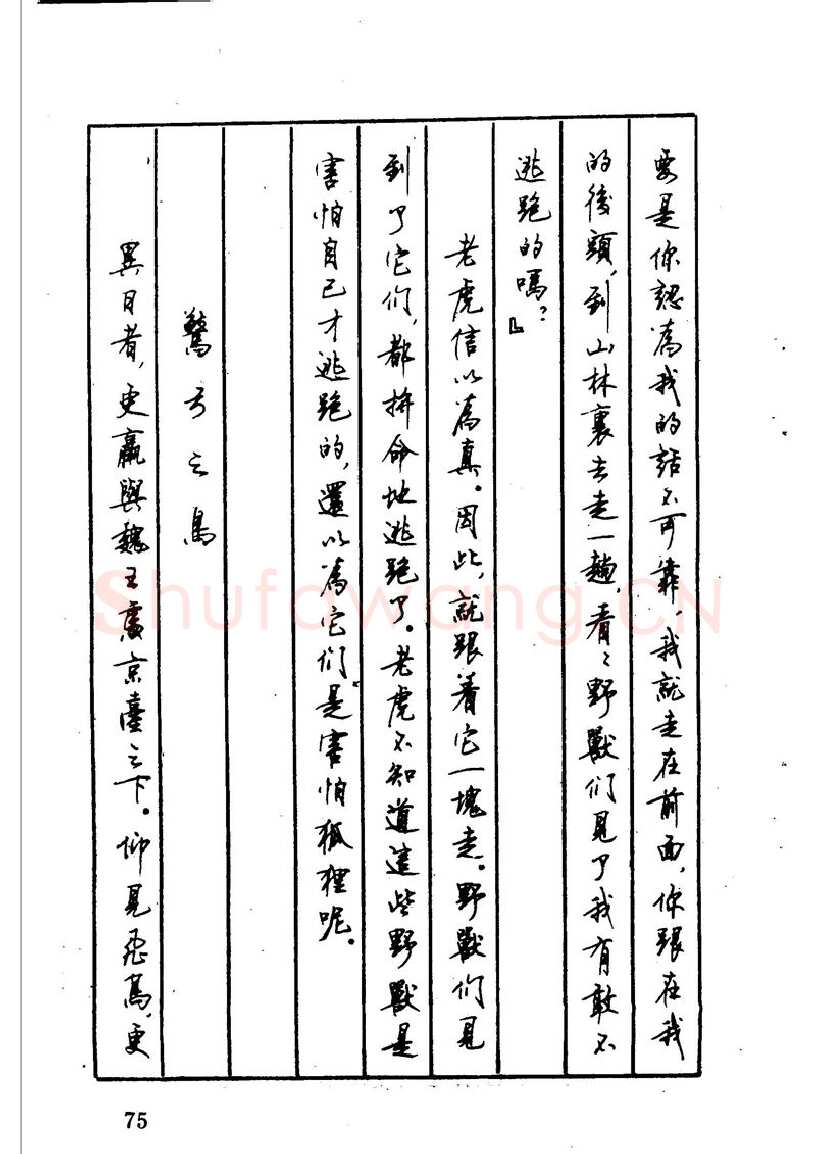 要是你認為我的話不可靠，我就走在前面，你跟在我
的後頭，到山林裏去走一趟，看〻野獸們見了我有敢不
逃跑的嗎？』
老虎信以為真。因此，就跟着它一塊走。野獸們見
到了它们，都拚命地逃跑了。老虎不知道這些野獸是
害怕自己才逃跑的，還以為它们是害怕狐狸呢。
驚弓之鳥
異日者，更羸與魏王處京臺之下。仰見飛鳥，更
75
Shufawang.CN